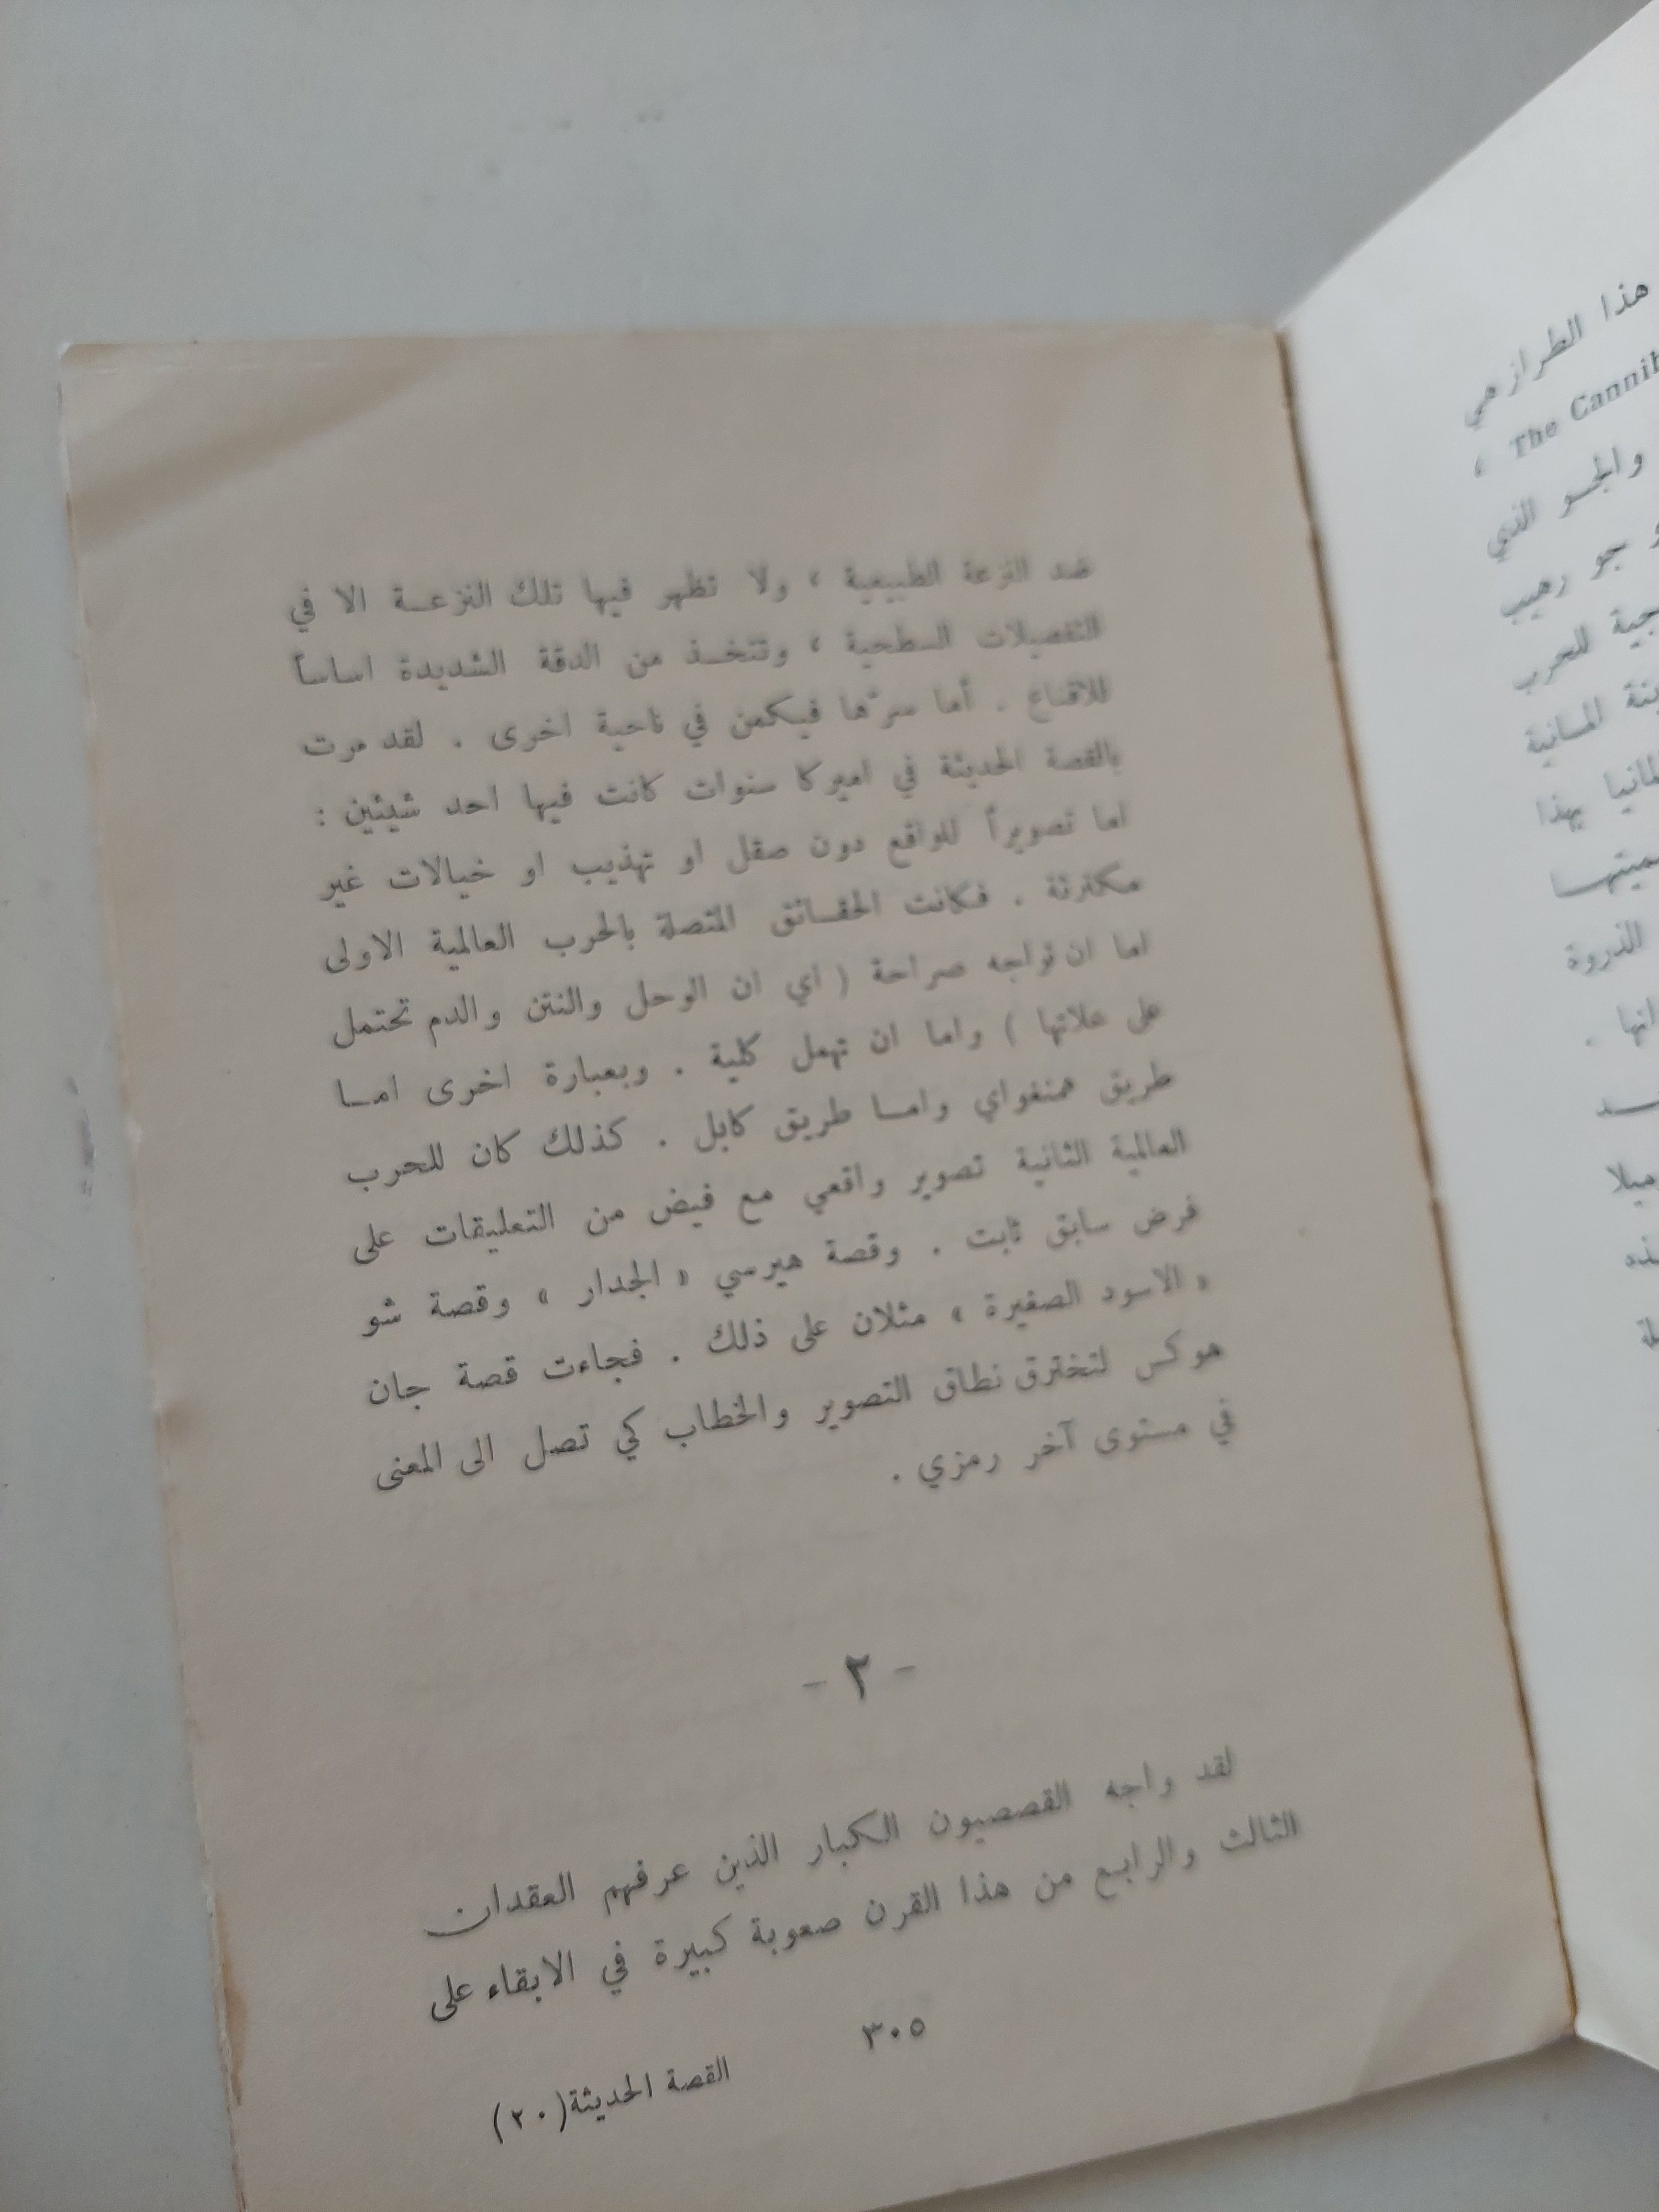 هذا الطراز هي
، The Cannib
والجو الذي
جو رهيب
جية للحرب
ينة المانية
لمانيا بهذا
ميتها
الذروة
انها .
ميلا
ضد النزعة الطبيعية ، ولا تظهر فيها تلك النزعة الا في
التفصيلات السطحية ، وتتخذ من الدقة الشديدة اساساً
للاقناع . أما سرّها فيكمن في ناحية اخرى . لقد مرت
بالقصة الحديثة في اميركا سنوات كانت فيها احد شيئين :
اما تصويراً للواقع دون صقل او تهذيب او خيالات غير
مكترثة . فكانت الحقائق المتصلة بالحرب العالمية الاولى
اما ان تواجه صراحة ( اي ان الوحل والنتن والدم تحتمل
على علاتها ) واما ان تهمل كلية . وبعبارة اخرى اما
طريق همنغواي واما طريق كابل . كذلك كان للحرب
العالمية الثانية تصوير واقعي مع فيض من التعليقات على
فرض سابق ثابت . وقصة هيرسي « الجدار » وقصة شو
« الاسود الصغيرة » مثلان على ذلك . فجاءت قصة جان
هوكس لتخترق نطاق التصوير والخطاب كي تصل الى المعنى
في مستوى آخر رمزي .
- ٢ -
لقد واجه القصصيون الكبار الذين عرفهم العقدان
الثالث والرابع من هذا القرن صعوبة كبيرة في الابقاء على
٣٠٥
القصة الحديثة (٢٠)